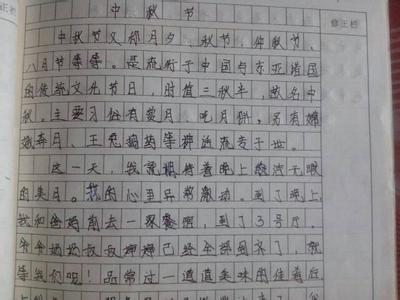 中秋节
中秋节又称月夕、秋节、仲秋节、
八月节等等。是流行于中国与东亚诸国
的传统文化节日,时值三秋半,故名中
秋。主要习俗有赏月、吃月饼,另有嫦
娥奔月、玉兔捣药等神话流传于世。
这一天,我就期待着晚上皎洁无暇
的美月。我的心里异常激动。到了晚上
我和爸妈前去一家餐馆,到了3号厅。
爷爷奶奶叔叔婶婶已经全部到齐了,就
等我们呢!品尝过一道道美味的佳肴后
修正栏
正栏